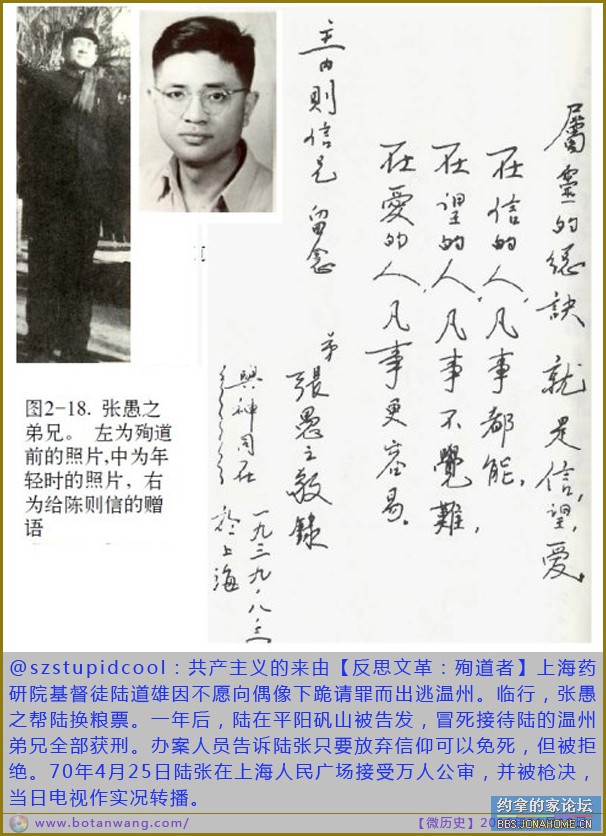 屬靈的總訣就是信,望,愛。
在信的人,凡事都能。
在望的人,凡事不覺難,
在愛的人,凡事更容易。
主內則信兄 留念
弟 張愚之敬錄
與神同在
一九三九.八.
於上海
图2-18. 张愚之
弟兄。 左为殉道
前的照片,中为年
轻时的照片，右
为给陈则信的赠
语
@szstupidcool：共产主义的来由【反思文革：殉道者】上海药
研院基督徒陆道雄因不愿向偶像下跪请罪而出逃温州。临行，张愚
之帮陆换粮票。一年后，陆在平阳矾山被告发，冒死接待陆的温州
弟兄全部获刑。办案人员告诉陆张只要放弃信仰可以免死，但被拒
绝。70年4月25日陆张在上海人民广场接受万人公审，并被枪决，
当日电视作实况转播。
www.botanwang.com/
【微历史】
约拿的家论坛
BBS.JONAHOME.CN